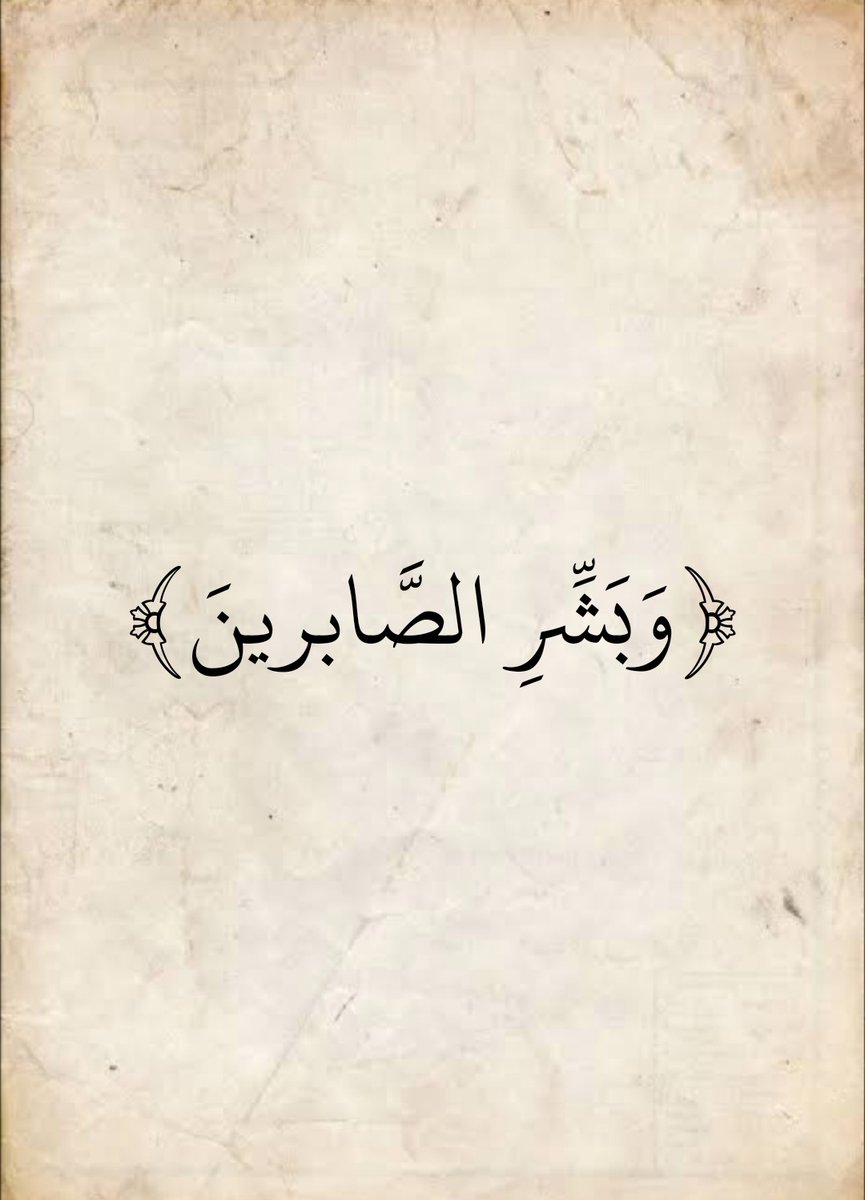 ﴿وَبَشِّرِ الصَّابرينَ﴾